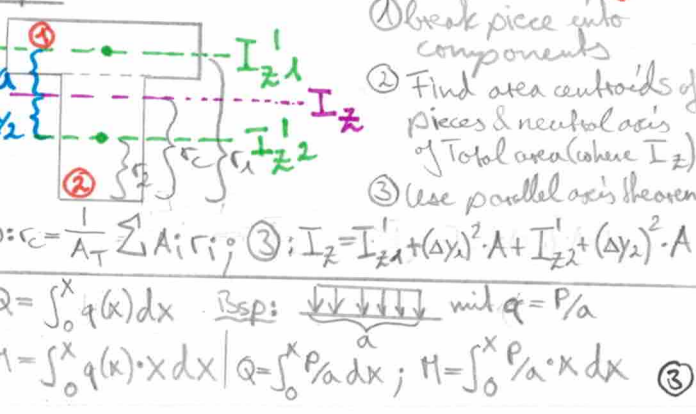 ① break piece into
components
② Find area centroids of
pieces & neutral axis
of Total area (where I_z)
③ Use parallel axis theorem
①
I'_z1
I_z
I'_z2
②
r_2
r_c
r_1
r_c = 1/A_T ∑ A_i r_i ; ③: I_z = I'_z1 + (Δy_1)²·A + I'_z2 + (Δy_2)²·A
Q = ∫₀ˣ q(x) dx Bsp: mit q = P/a
a
M = ∫₀ˣ q(x)·x dx | Q = ∫₀ˣ P/a dx ; M = ∫₀ˣ P/a·x dx ③